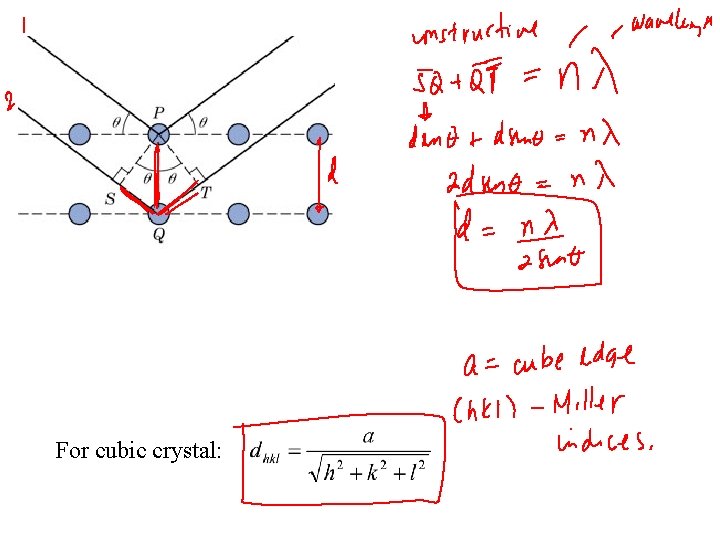 1
2
P
θ θ
θ θ
S T
Q
d
constructive
wavelength
SQ + QT = nλ
dsinθ + dsinθ = nλ
2dsinθ = nλ
d = nλ / 2sinθ
a = cube edge
(hkl) - Miller
indices.
For cubic crystal: d_hkl = a / √(h² + k² + l²)